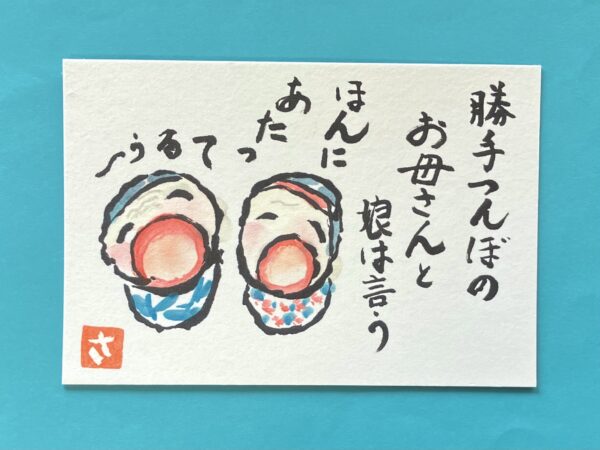 勝手つんぼの
お母さんと
娘は言う
ほんに
あたってるぅ〜
さ